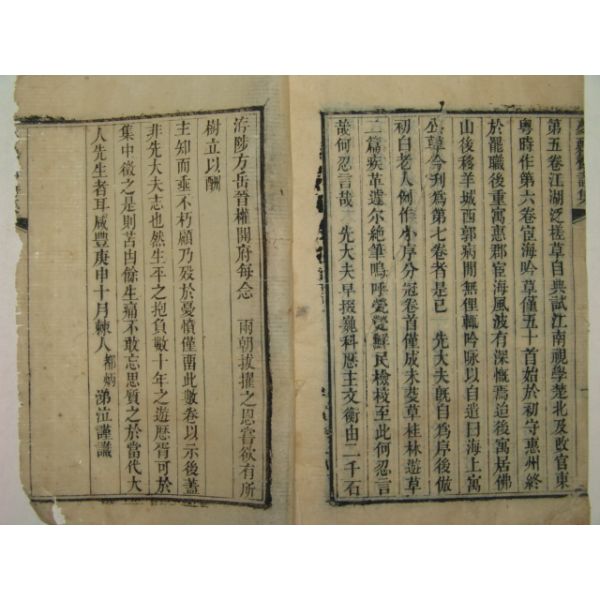 第五卷江湖泛搓草自典試江南視學楚北及改官東
粵時作第六卷宦海吟草僅五十首始於初守惠州終
於罷職後重寓惠郡宦海風波有深慨焉迨後寓居佛
山後移羊城西郭病閒無俚輒吟詠以自遣曰海上寓
公草今刋為第七卷者是已 先大夫既自為序後倣
初白老人例惟小序分冠卷首僅成未芟草桂林遊草
二篇疾革遽尔絶筆嗚呼愛甇鮮民檢校至此何忍言
哉何忍言哉 先大夫早掇巍科歷主文衡由二千石
洊陟方岳晉權開府每念 兩朝拔擢之恩嘗欲有所
樹立以酬
主知而垂不朽顧乃殁於憂憤僅畱此數卷以示後葢
非先大夫志也然生平之抱負數十年之遊歷胥可於
集中徵之是則苦肉餘生痛不敢忘思質之於當代大
人先生者耳咸豐庚申十月棘人 炳 涕泣謹識